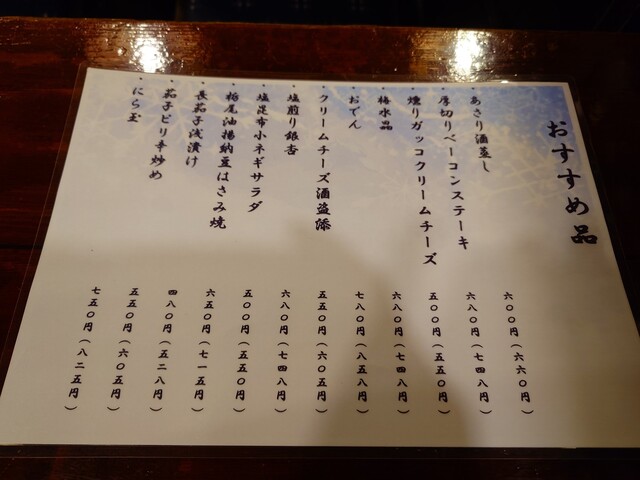 おすすめ品
・あさり酒蒸し 六〇〇円(六六〇円)
・厚切りベーコンステーキ 六八〇円(七四八円)
・燻りガッコクリームチーズ 五〇〇円(五五〇円)
・梅水晶 六八〇円(七四八円)
・おでん 七八〇円(八五八円)
・クリームチーズ酒盗添 五五〇円(六〇五円)
・塩煎り銀杏 六八〇円(七四八円)
・塩昆布小ネギサラダ 五〇〇円(五五〇円)
・栃尾油揚納豆はさみ焼 六五〇円(七一五円)
・長茄子浅漬け 四八〇円(五二八円)
・茄子ピリ辛炒め 五五〇円(六〇五円)
・にら玉 七五〇円(八二五円)